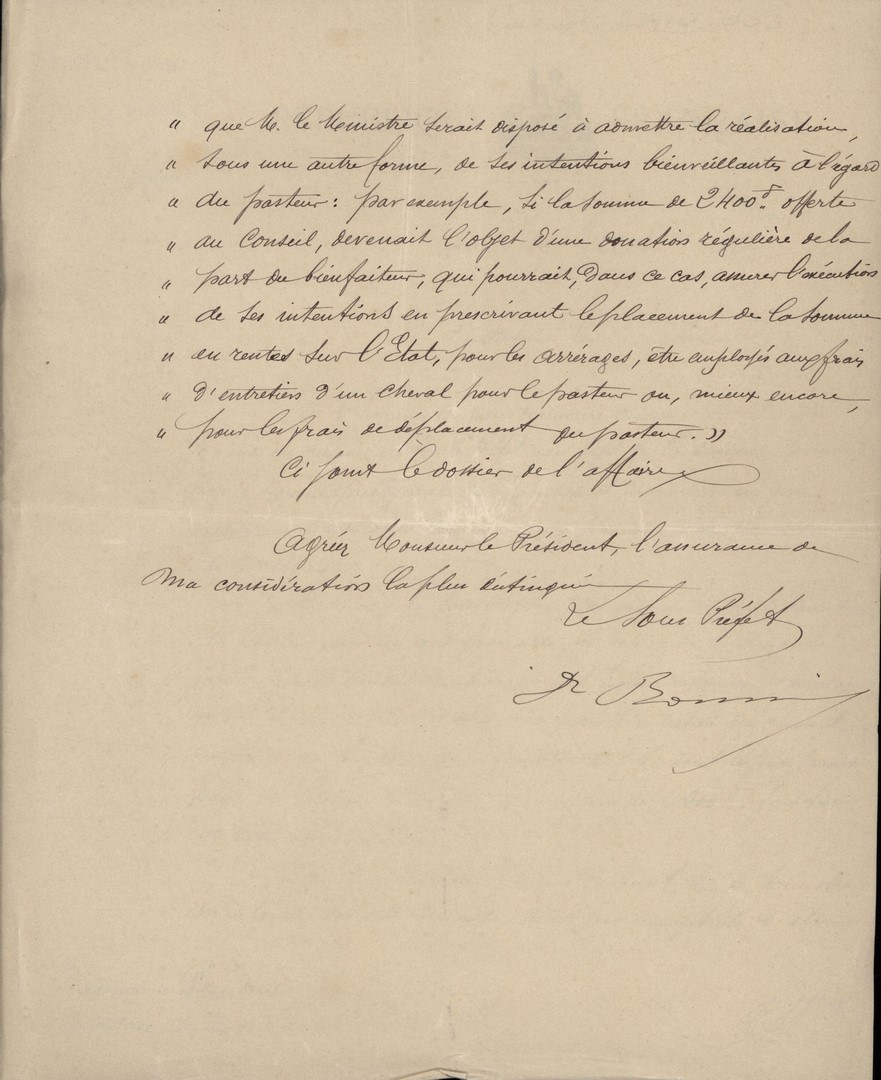 " que M. le Ministre serait disposé à admettre la réalisation,
" sous une autre forme, de ses intentions bienveillantes à l'égard
" du pasteur : par exemple, si la somme de 2400 f. offerte
" au Conseil, devenait l'objet d'une donation régulière de la
" part du bienfaiteur, qui pourrait, dans ce cas, assurer l'exécution
" de ses intentions en prescrivant le placement de la somme
" en rentes sur l'Etat, pour les arrérages, être employés aux frais
" d'entretien d'un cheval pour le pasteur ou, mieux encore,
" pour les frais de déplacement du pasteur. »
Ci joint le dossier de l'affaire
Agréez Monsieur le Président, l'assurance de
ma considération la plus distinguée
Le Sous Préfet